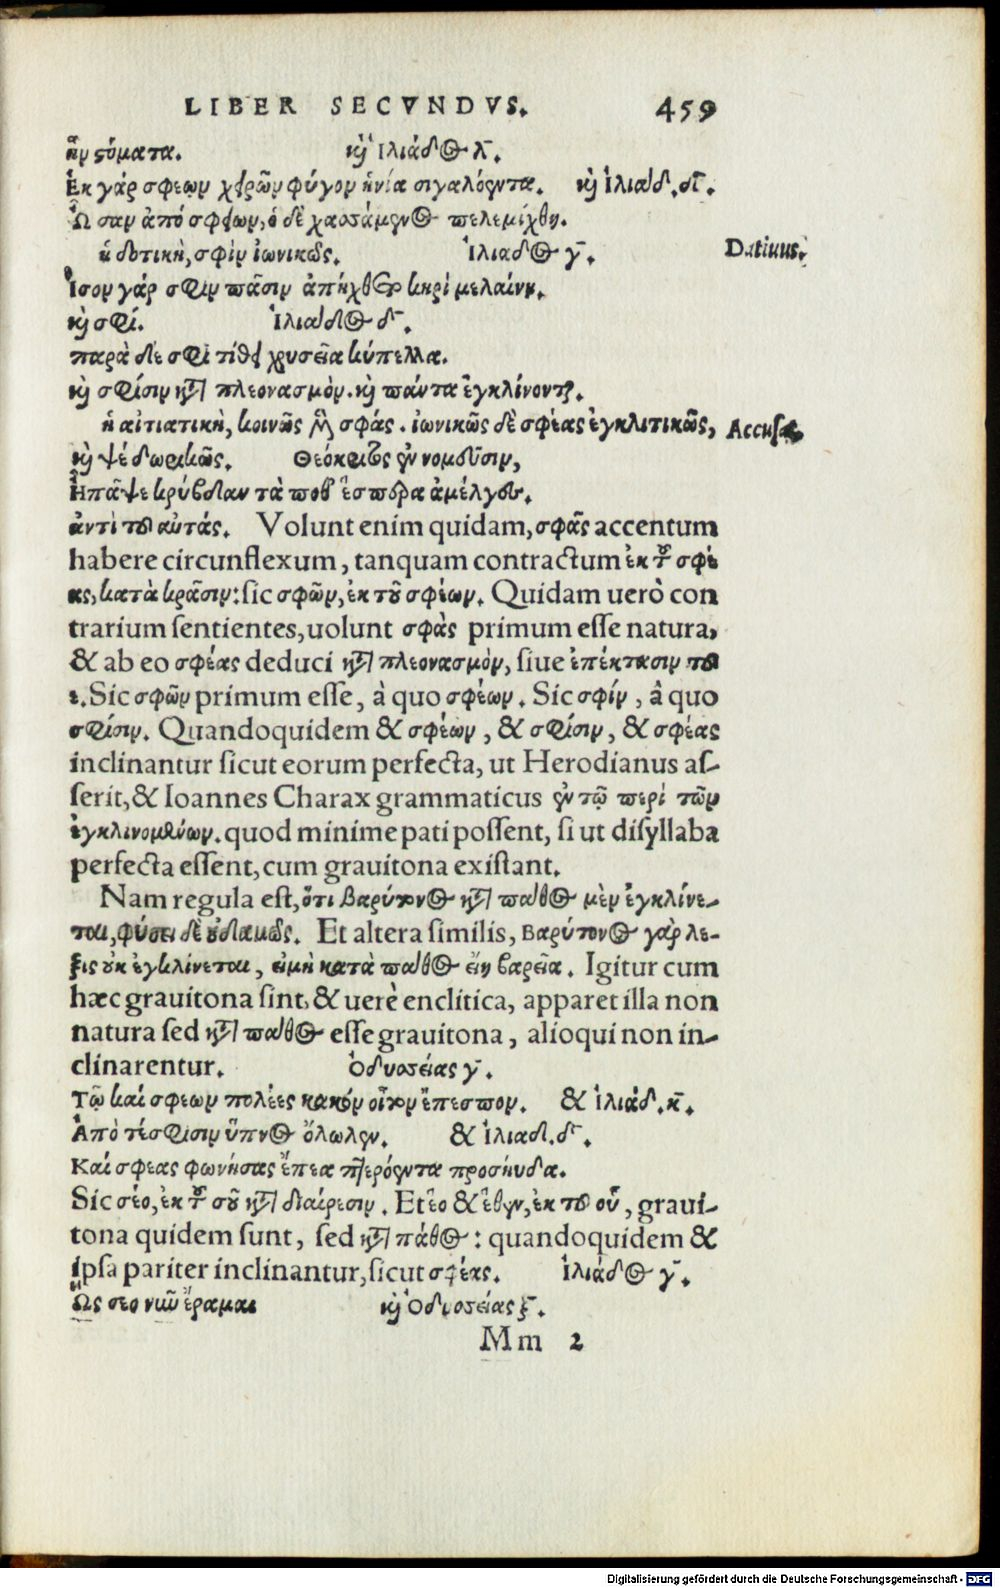 LIBER SECVNDVS. 459
ἢν στόματα. καὶ Ἰλιάδος λ̄.
Ἐκ γάρ σφεων χειρῶν φύγον ἡνία σιγαλόεντα. καὶ Ἰλιάδ. δ̄.
Ὦσαν ἀπό σφέων, ὁ δὲ χασσάμενος πελεμίχθη.
ἡ δοτικὴ, σφὶν ἰωνικῶς. Ἰλιάδος γ̄. Datiuus.
Ἶσον γάρ σφιν πᾶσιν ἀπήχθετο κηρὶ μελαίνῃ.
καὶ σφί. Ἰλιάδος δ̄.
παρὰ δέ σφι τίθει χρυσεῖα κύπελλα.
καὶ σφίσιν κατὰ πλεονασμὸν. καὶ πάντα ἐγκλίνονται.
ἡ αἰτιατικὴ, κοινῶς μὲν σφάς. ἰωνικῶς δὲ σφέας ἐγκλιτικῶς, Accusa.
καὶ ψέ δωρικῶς. Θεόκριτος ἐν νομεῦσιν,
Ἦ πᾶ ψε κρύβδαν τὰ ποθ' ἕσπερα ἀμέλγεις.
ἀντὶ τοῦ αὐτάς. Volunt enim quidam, σφᾶς accentum
habere circunflexum, tanquam contractum ἐκ τοῦ σφέ
ας, κατὰ κρᾶσιν: sic σφῶν, ἐκ τοῦ σφέων. Quidam uerò con
trarium sentientes, uolunt σφὰς primum esse natura,
& ab eo σφέας deduci κατὰ πλεονασμὸν, siue ἐπέκτασιν τοῦ
ε. Sic σφῶν primum esse, à quo σφέων. Sic σφίν, â quo
σφίσιν. Quandoquidem & σφέων, & σφίσιν, & σφέας
inclinantur sicut eorum perfecta, ut Herodianus as-
serit, & Ioannes Charax grammaticus ἐν τῷ περὶ τῶν
ἐγκλινομένων. quod minime pati possent, si ut disyllaba
perfecta essent, cum grauitona existant.
Nam regula est, ὅτι βαρύτονος κατὰ πάθος μὲν ἐγκλίνε-
ται, φύσει δὲ οὐδαμῶς. Et altera similis, βαρύτονος γὰρ λέ-
ξις οὐκ ἐγκλίνεται, εἰ μὴ κατὰ πάθος εἴη βαρεῖα. Igitur cum
hæc grauitona sint, & uerè enclitica, apparet illa non
natura sed κατὰ πάθος esse grauitona, alioqui non in-
clinarentur. Ὀδυσσείας γ̄.
Τῷ καί σφεων πολέες κακὸν οἶτον ἔπεσπον. & Ἰλιάδ. κ̄.
Ἀπὸ τέ σφισιν ὕπνος ὄλωλεν. & Ἰλιαδ. δ̄.
Καί σφεας φωνήσας ἔπεα πτερόεντα προσηύδα.
Sic σέο, ἐκ τοῦ σοῦ κατὰ διαίρεσιν. Et ἕο & ἕθεν, ἐκ τοῦ οὗ, graui-
tona quidem sunt, sed κατὰ πάθος: quandoquidem &
ipsa pariter inclinantur, sicut σφέας. Ἰλιάδος γ̄.
Ὥς σεο νῦν ἔραμαι καὶ Ὀδυσσείας ξ̄.
Mm 2
Digitalisierung gefördert durch die Deutsche Forschungsgemeinschaft - DFG